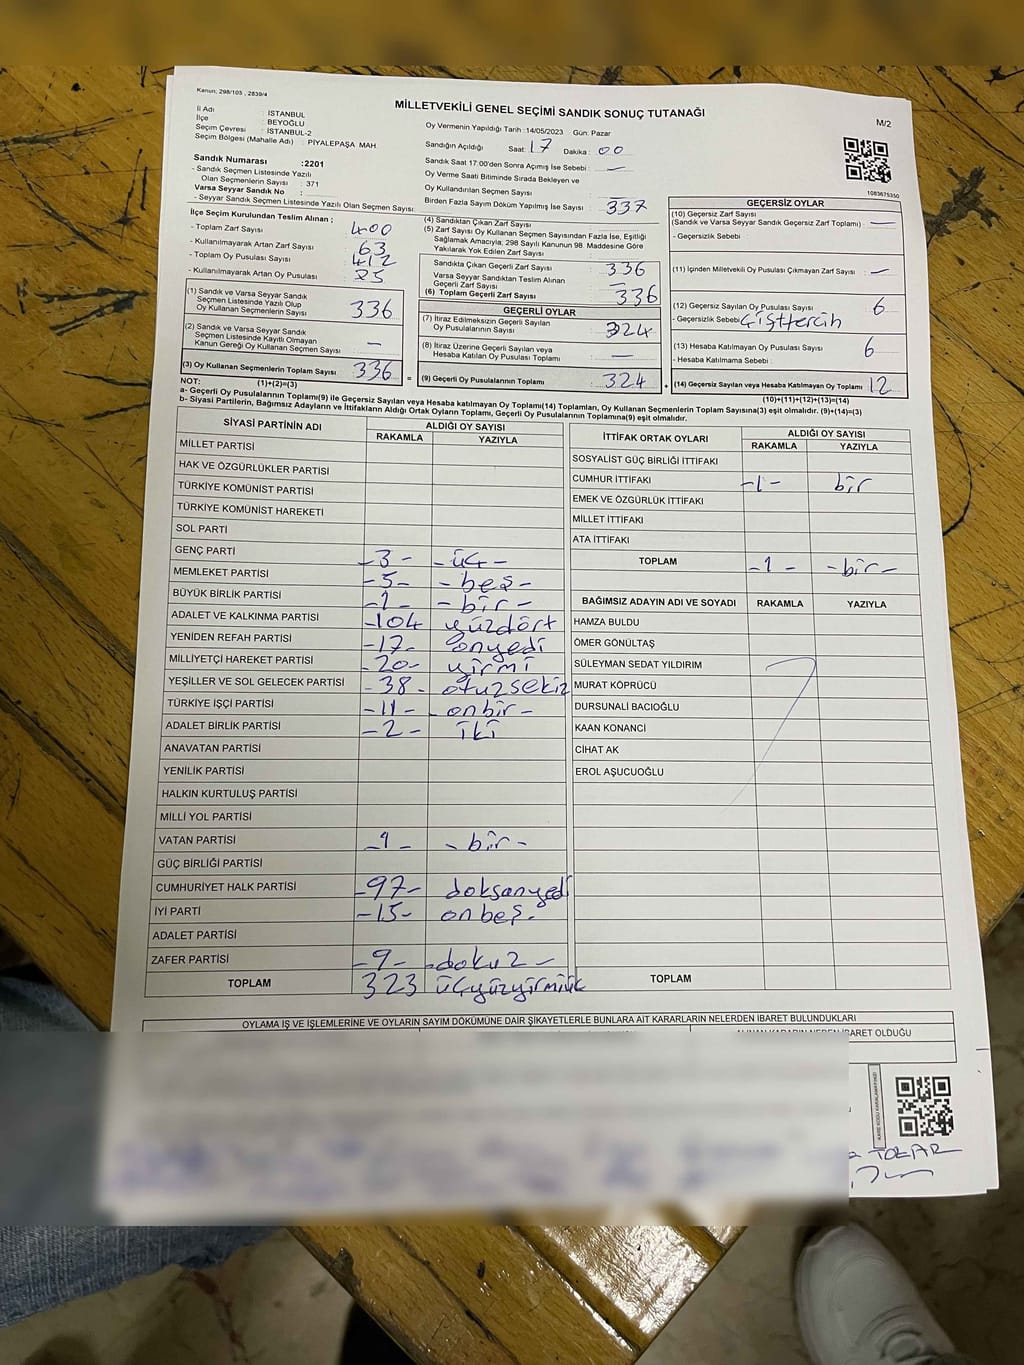 Kanun; 298/105 , 2839/4
MİLLETVEKİLİ GENEL SEÇİMİ SANDIK SONUÇ TUTANAĞI
M/2
İl Adı : İSTANBUL
İlçe : BEYOĞLU
Seçim Çevresi : İSTANBUL-2
Seçim Bölgesi (Mahalle Adı) : PİYALEPAŞA MAH.
Sandık Numarası : 2201
- Sandık Seçmen Listesinde Yazılı
Olan Seçmenlerin Sayısı : 371
Varsa Seyyar Sandık No :
- Seyyar Sandık Seçmen Listesinde Yazılı Olan Seçmen Sayısı:
Oy Vermenin Yapıldığı Tarih :14/05/2023 Gün: Pazar
Sandığın Açıldığı Saat: 17 Dakika : 00
Sandık Saat 17:00'den Sonra Açımış İse Sebebi : —
Oy Verme Saati Bitiminde Sırada Bekleyen ve
Oy Kullandırılan Seçmen Sayısı :
Birden Fazla Sayım Döküm Yapılmış İse Sayısı :
1083675350
İlçe Seçim Kurulundan Teslim Alınan ;
- Toplam Zarf Sayısı : 400
- Kullanılmayarak Artan Zarf Sayısı : 63
- Toplam Oy Pusulası Sayısı : 412
- Kullanılmayarak Artan Oy Pusulası :
(1) Sandık ve Varsa Seyyar Sandık
Seçmen Listesinde Yazılı Olup
Oy Kullanan Seçmenlerin Sayısı 336
(2) Sandık ve Varsa Seyyar Sandık
Seçmen Listesinde Kayıtlı Olmayan
Kanun Gereği Oy Kullanan Seçmen Sayısı —
(3) Oy Kullanan Seçmenlerin Toplam Sayısı 336
(1)+(2)=(3)
(4) Sandıktan Çıkan Zarf Sayısı : 337
(5) Zarf Sayısı Oy Kullanan Seçmen Sayısından Fazla İse, Eşitliği
Sağlamak Amacıyla; 298 Sayılı Kanunun 98. Maddesine Göre
Yakılarak Yok Edilen Zarf Sayısı :
Sandıkta Çıkan Geçerli Zarf Sayısı : 336
Varsa Seyyar Sandıktan Teslim Alınan
Geçerli Zarf Sayısı : —
(6) Toplam Geçerli Zarf Sayısı : 336
GEÇERLİ OYLAR
(7) İtiraz Edilmeksizin Geçerli Sayılan
Oy Pusulalarının Sayısı : 324
(8) İtiraz Üzerine Geçerli Sayılan veya
Hesaba Katılan Oy Pusulası Toplamı : —
= (9) Geçerli Oy Pusulalarının Toplamı : 324
GEÇERSİZ OYLAR
(10) Geçersiz Zarf Sayısı
(Sandık ve Varsa Seyyar Sandık Geçersiz Zarf Toplamı) : —
- Geçersizlik Sebebi
(11) İçinden Milletvekili Oy Pusulası Çıkmayan Zarf Sayısı : —
(12) Geçersiz Sayılan Oy Pusulası Sayısı : 6
- Geçersizlik Sebebi
(13) Hesaba Katılmayan Oy Pusulası Sayısı : 6
- Hesaba Katılmama Sebebi :
+ (14) Geçersiz Sayılan veya Hesaba Katılmayan Oy Toplamı 12
(10)+(11)+(12)+(13)=(14)
NOT:
a- Geçerli Oy Pusulalarının Toplamı(9) ile Geçersiz Sayılan veya Hesaba katılmayan Oy Toplamı(14) Toplamları, Oy Kullanan Seçmenlerin Toplam Sayısına(3) eşit olmalıdır. (9)+(14)=(3)
b- Siyasi Partilerin, Bağımsız Adayların ve İttifakların Aldığı Ortak Oyların Toplamı, Geçerli Oy Pusulalarının Toplamına(9) eşit olmalıdır.
SİYASİ PARTİNİN ADI ALDIĞI OY SAYISI
RAKAMLA YAZIYLA
MİLLET PARTİSİ
HAK VE ÖZGÜRLÜKLER PARTİSİ
TÜRKİYE KOMÜNİST PARTİSİ
TÜRKİYE KOMÜNİST HAREKETİ
SOL PARTİ
GENÇ PARTİ -3- -üç-
MEMLEKET PARTİSİ -5- -beş-
BÜYÜK BİRLİK PARTİSİ -1- -bir-
ADALET VE KALKINMA PARTİSİ -104 yüzdört
YENİDEN REFAH PARTİSİ -17- onyedi
MİLLİYETÇİ HAREKET PARTİSİ -20- yirmi
YEŞİLLER VE SOL GELECEK PARTİSİ -38- otuzsekiz
TÜRKİYE İŞÇİ PARTİSİ -11- -onbir-
ADALET BİRLİK PARTİSİ -2- iki
ANAVATAN PARTİSİ
YENİLİK PARTİSİ
HALKIN KURTULUŞ PARTİSİ
MİLLİ YOL PARTİSİ
VATAN PARTİSİ -1- -bir-
GÜÇ BİRLİĞİ PARTİSİ
CUMHURİYET HALK PARTİSİ -97- doksanyedi
İYİ PARTİ -15- onbeş-
ADALET PARTİSİ
ZAFER PARTİSİ -9- -dokuz-
TOPLAM 323
İTTİFAK ORTAK OYLARI ALDIĞI OY SAYISI
RAKAMLA YAZIYLA
SOSYALİST GÜÇ BİRLİĞİ İTTİFAKI
CUMHUR İTTİFAKI -1- bir
EMEK VE ÖZGÜRLÜK İTTİFAKI
MİLLET İTTİFAKI
ATA İTTİFAKI
TOPLAM -1- -bir-
BAĞIMSIZ ADAYIN ADI VE SOYADI RAKAMLA YAZIYLA
HAMZA BULDU
ÖMER GÖNÜLTAŞ
SÜLEYMAN SEDAT YILDIRIM
MURAT KÖPRÜCÜ
DURSUNALİ BACIOĞLU
KAAN KONANCİ
CİHAT AK
EROL AŞUCUOĞLU
TOPLAM
OYLAMA İŞ VE İŞLEMLERİNE VE OYLARIN SAYIM DÖKÜMÜNE DAİR ŞİKAYETLERLE BUNLARA AİT KARARLARIN NELERDEN İBARET BULUNDUKLARI
ALINAN KARARIN NEDEN İBARET OLDUĞU